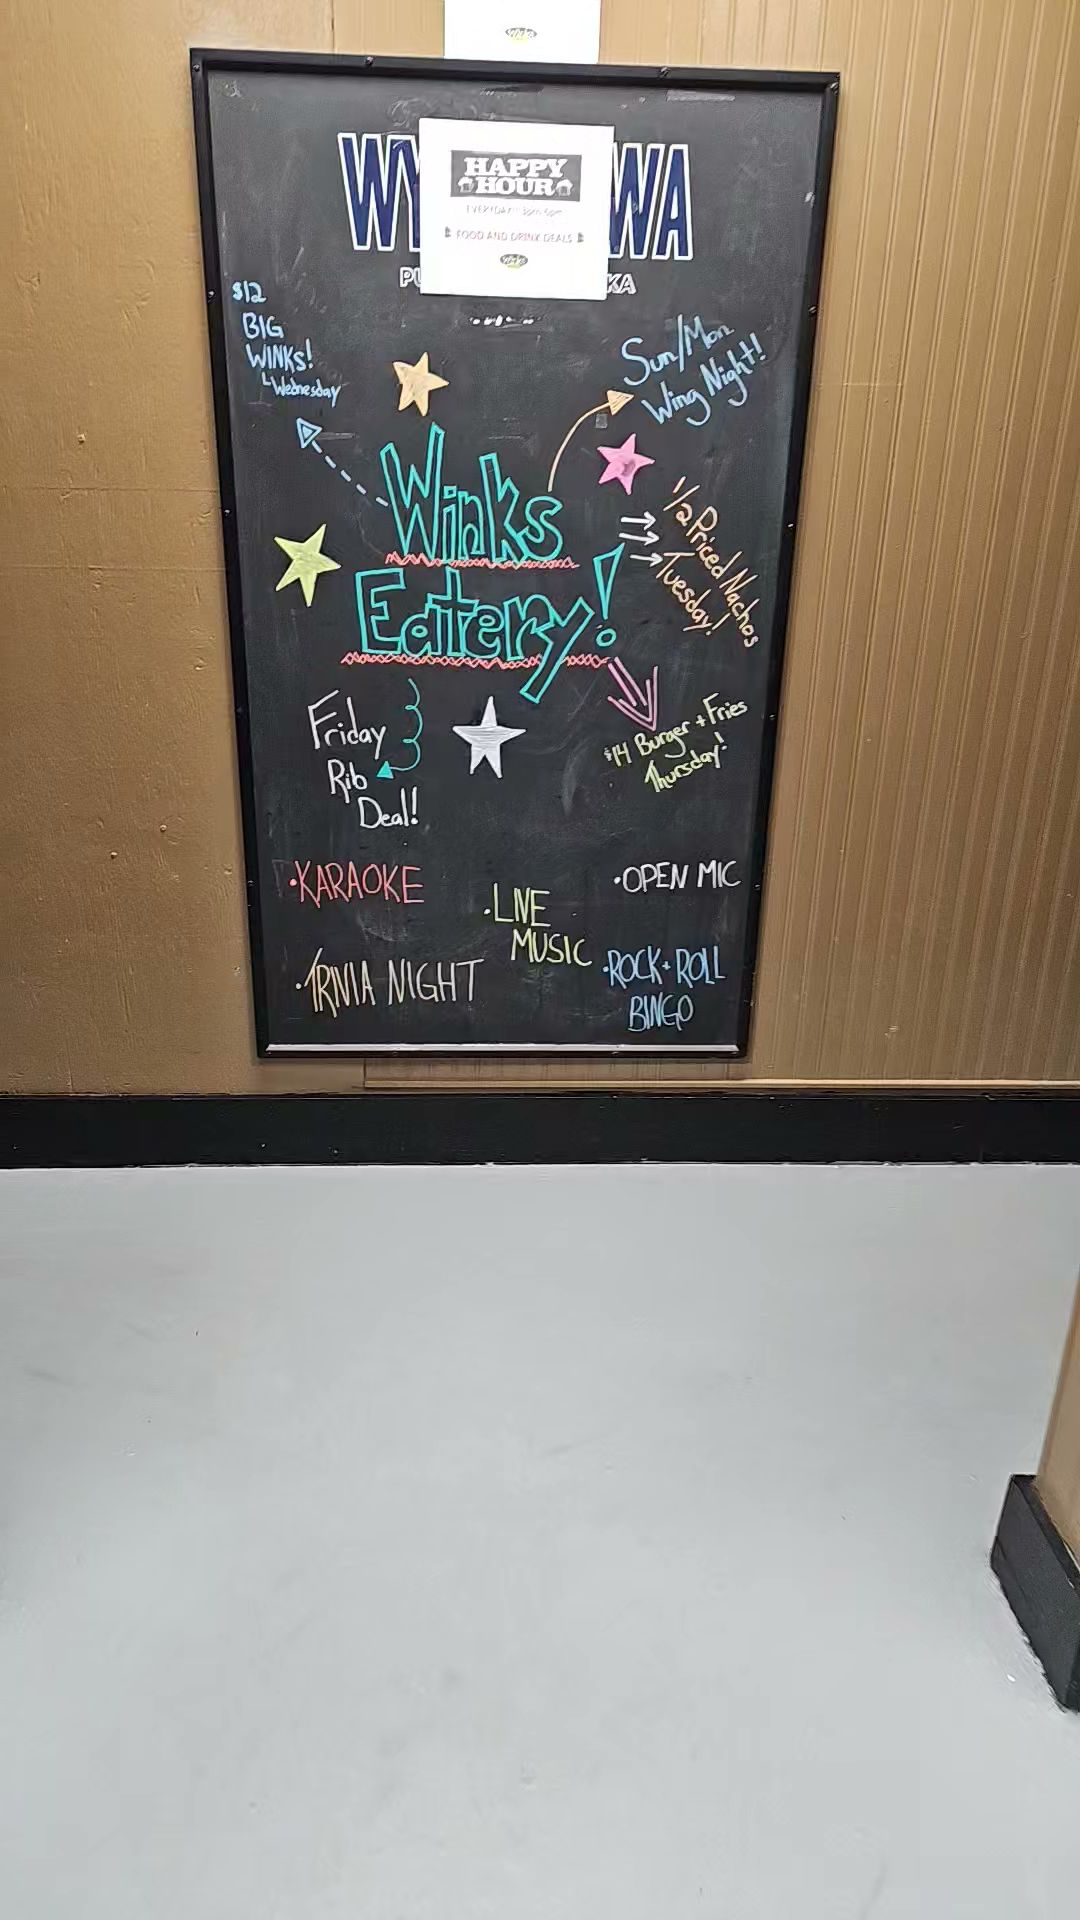 Winks
WY WA
HAPPY
HOUR
EVERYDAY! 3pm-6pm
FOOD AND DRINK DEALS
Winks
PU KA
$12
BIG
WINKS!
Wednesday
Sun/Mon
Wing Night!
1/2 Priced Nachos
Tuesday!
Winks
Eatery!
$14 Burger + Fries
Thursday!
Friday
Rib
Deal!
•KARAOKE
•OPEN MIC
•LIVE
MUSIC
•TRIVIA NIGHT
•ROCK+ROLL
BINGO